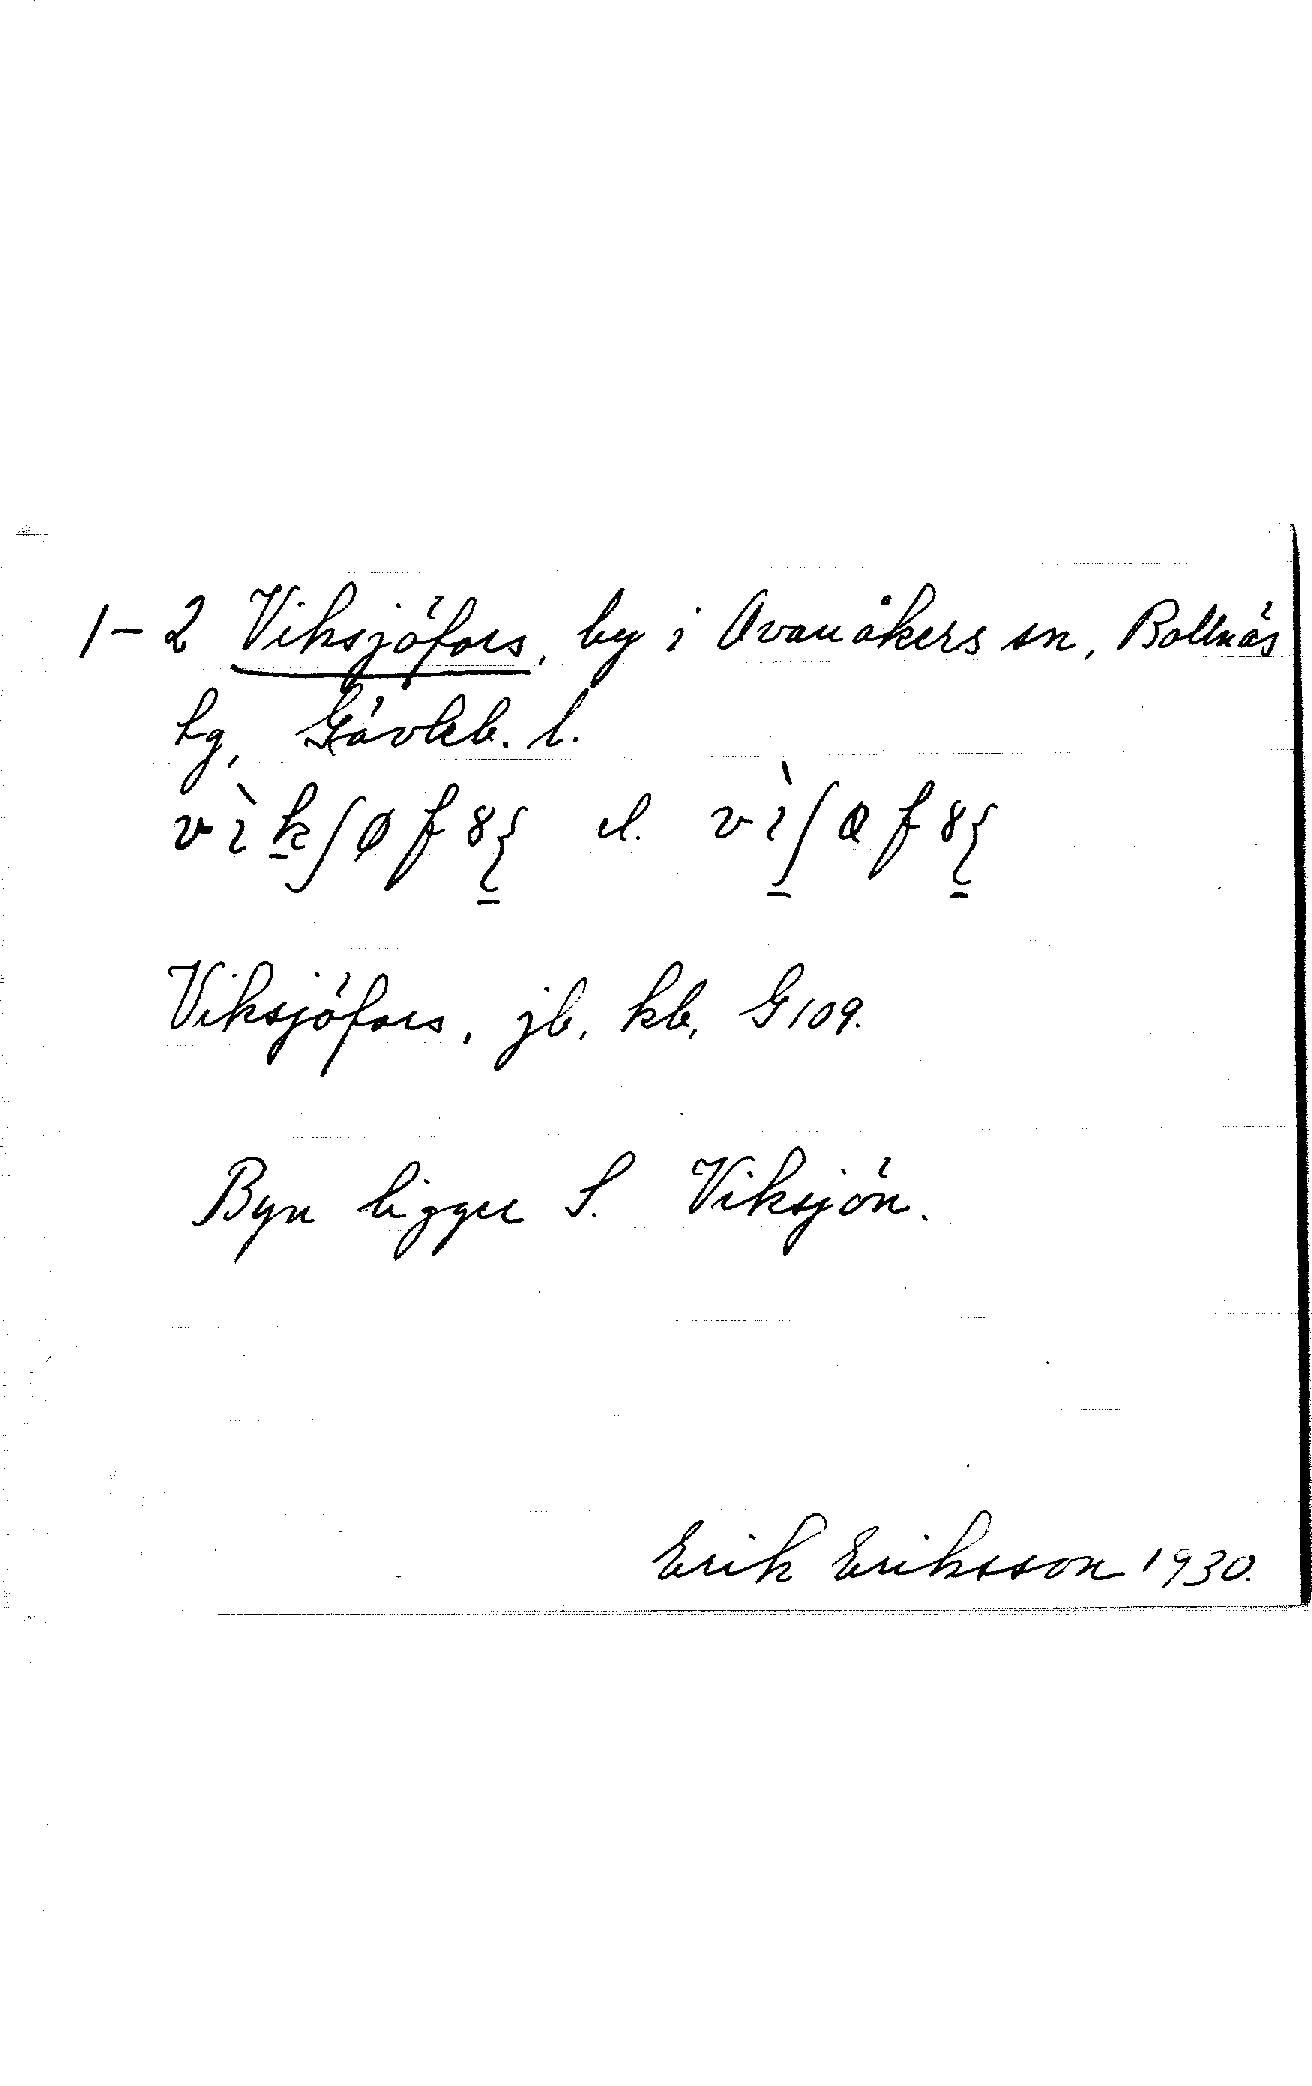 1–2 Viksjöfors, by i Ovanåkers sn, Bollnäs
tg, Gävleb. l.
el.
Viksjöfors, jb, kb, G109.
Byn ligger S. Viksjön.
Erik Eriksson 1930.